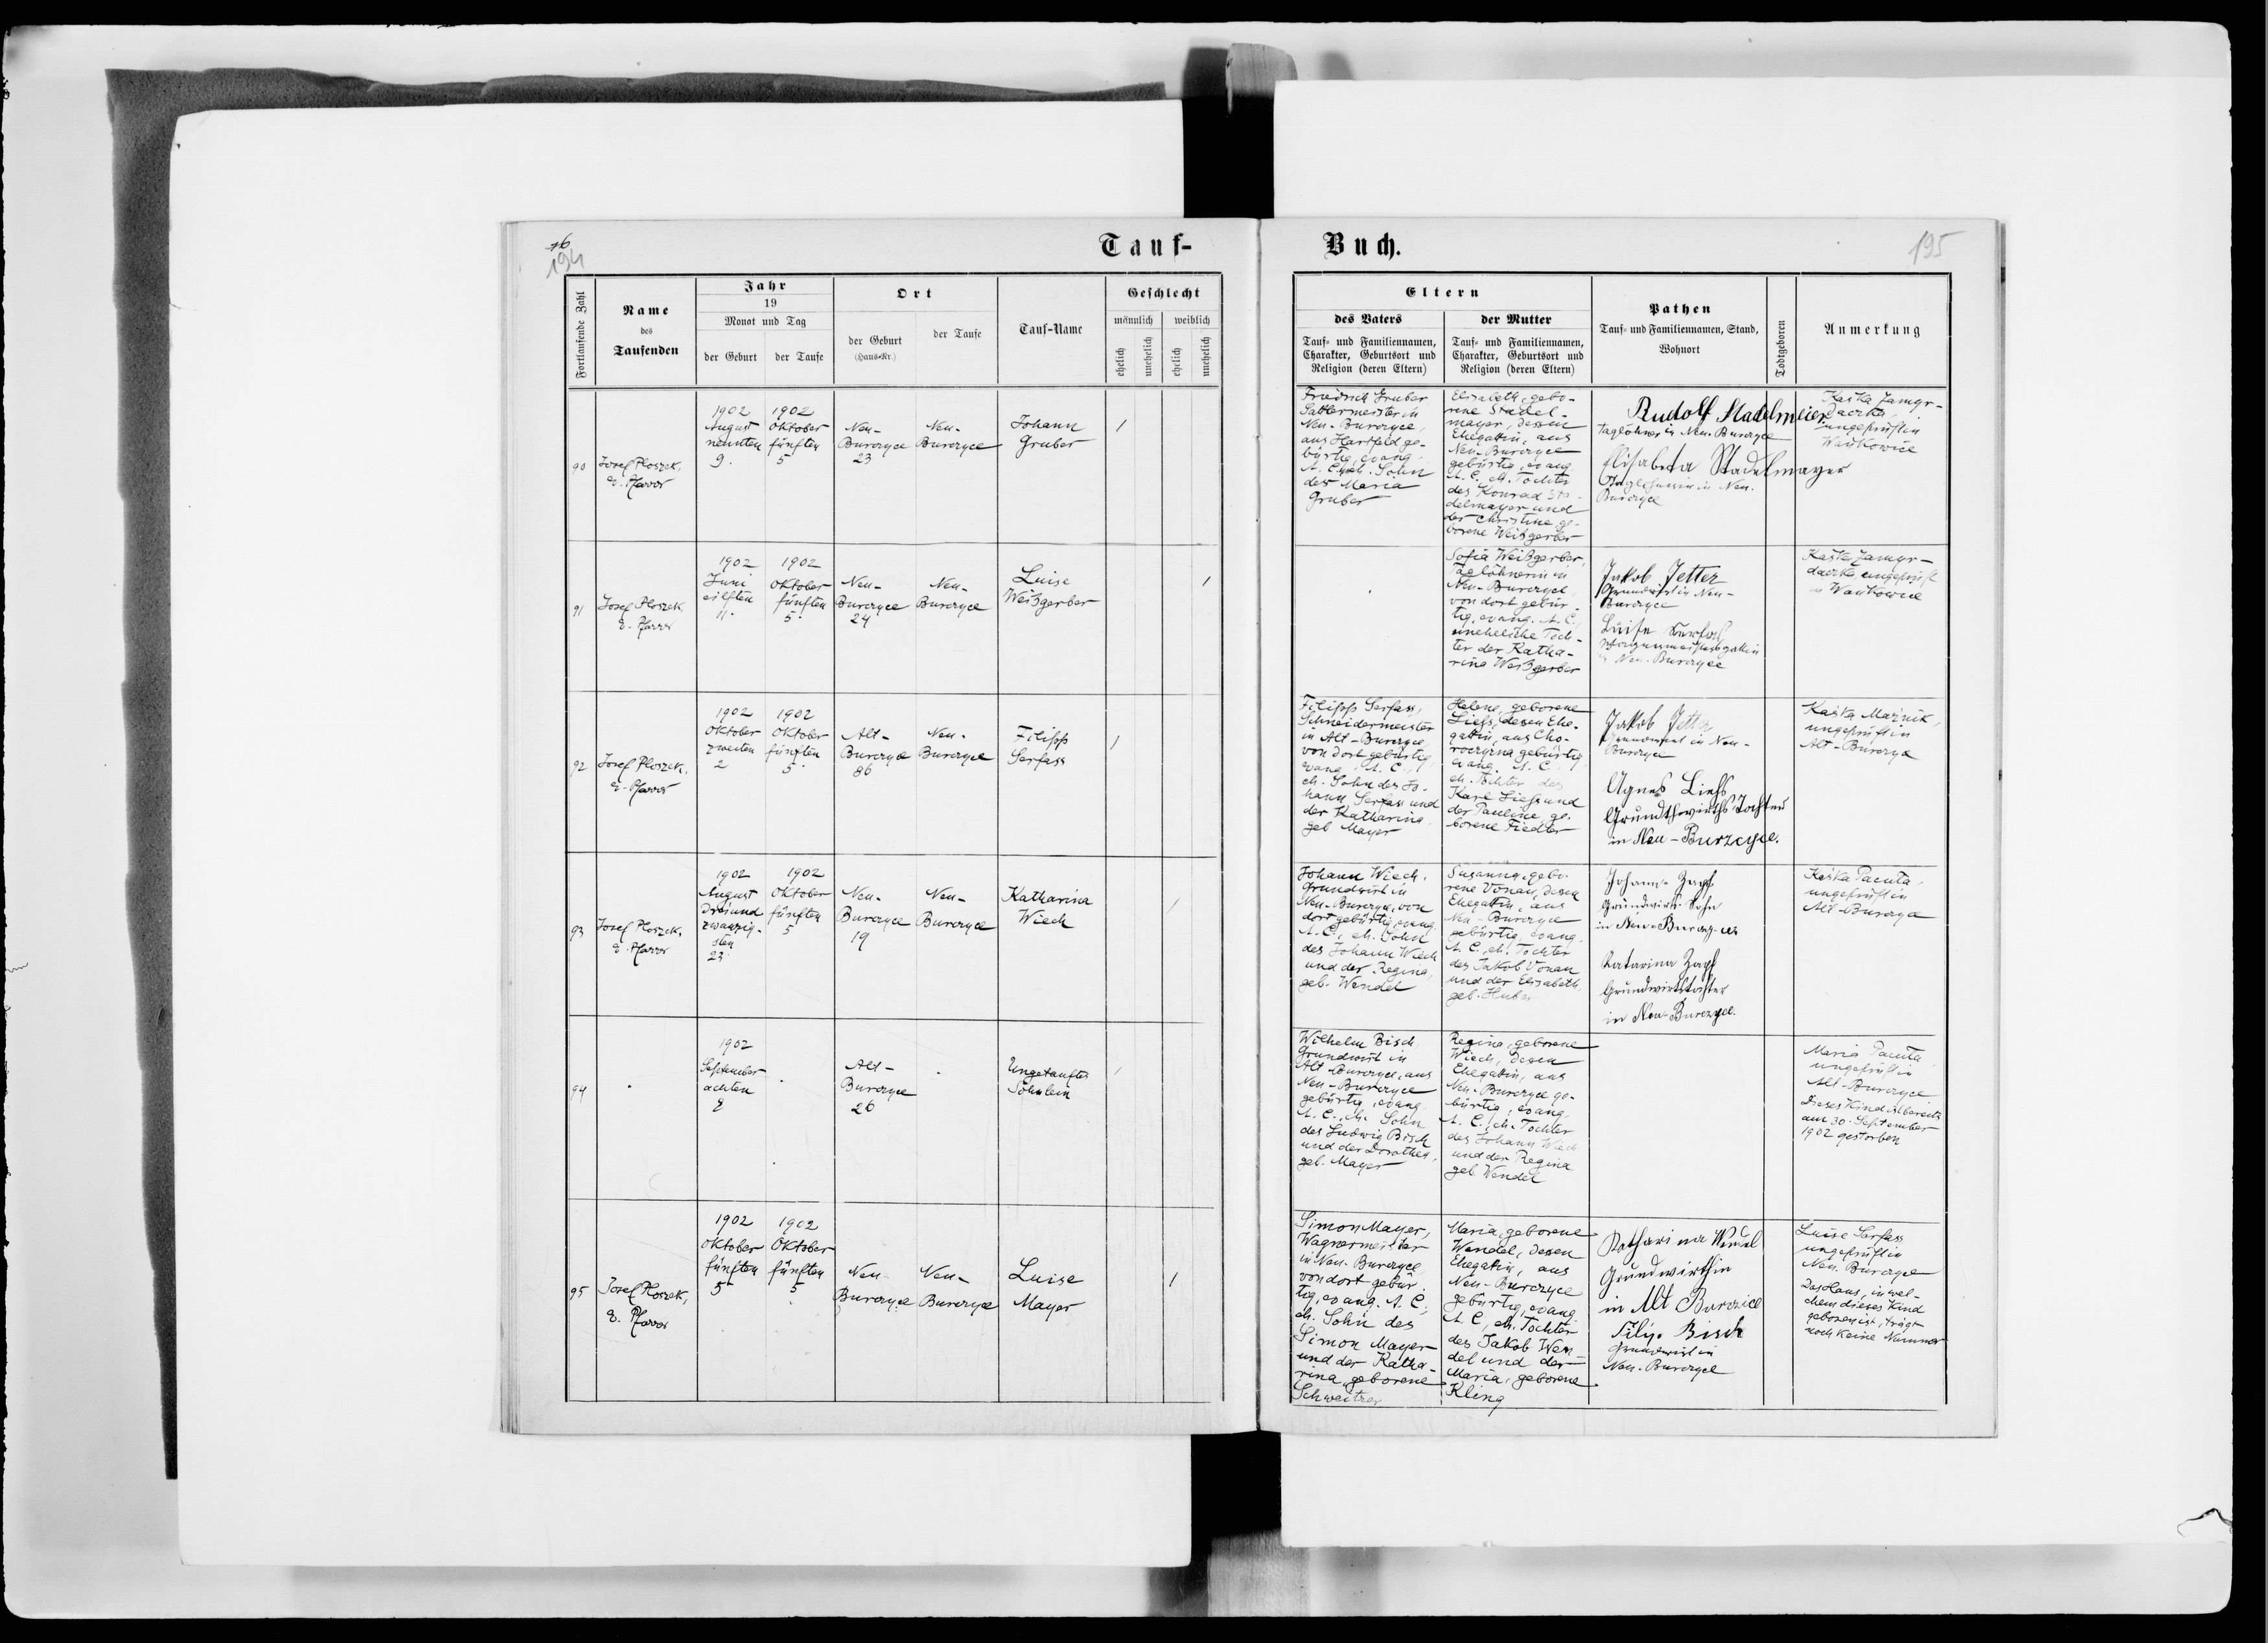 16
194
Tauf-
Fortlaufende Zahl
Name
des
Taufenden
Jahr
19
Monat und Tag
der Geburt
der Taufe
Ort
der Geburt
(Haus-Nr.)
der Taufe
Tauf-Name
Geschlecht
männlich
weiblich
ehelich
unehelich
ehelich
unehelich
90
Josef Ploszek,
e. Pfarrer
1902
August
neunten
9.
1902
Oktober
fünften
5
Neu-
Burczyce
23
Neu-
Burczyce
Johann
Gruber
1
91
Josef Ploszek
e. Pfarrer
1902
Juni
eilften
11.
1902
Oktober
fünften
5.
Neu-
Burczyce
24
Neu-
Burczyce
Luise
Weißgerber
1
92
Josef Ploszek,
e. Pfarrer
1902
Oktober
zweiten
2
1902
Oktober
fünften
5.
Alt-
Burczyce
86
Neu-
Burczyce
Filipp
Serfass
1
93
Josef Ploszek,
e. Pfarrer
1902
August
dreiund
zwanzig-
sten
23.
1902
Oktober
fünften
5
Neu-
Burczyce
19
Neu-
Burczyce
Katharina
Wiech
1
94
1902
September
achten
8
Alt-
Burczyce
26
Ungetauftes
Söhnlein
1
95
Josef Ploszek,
e. Pfarrer
1902
Oktober
fünften
5
1902
Oktober
fünften
5
Neu-
Burczyce
Neu-
Burczyce
Luise
Mayer
1
Buch.
195
Eltern
des Vaters
Tauf- und Familiennamen,
Charakter, Geburtsort und
Religion (deren Eltern)
der Mutter
Tauf- und Familiennamen,
Charakter, Geburtsort und
Religion (deren Eltern)
Pathen
Tauf- und Familiennamen, Stand,
Wohnort
Todtgeboren
Anmerkung
Friedrich Gruber
Sattlermeister in
Neu-Burczyce,
aus Hartfeld ge-
bürtig, evang.
A. C., eh. Sohn
der Maria
Gruber
Elisabeth, gebo-
rene Stadel-
mayer, dessen
Ehegattin, aus
Neu-Burczyce
gebürtig, evang.
A. C. eh. Tochter
des Konrad Sta-
delmayer und
der Christine ge-
borene Weißgerber
Rudolf Stadelmeier
Taglöhner in Neu-Burczyce
Elisabeta Stadelmayer
Taglöhnerin in Neu-
Burczyce
Kaska Zamyr-
daczka,
ungeprüft in
Wańkowice
Sofia Weißgerber,
Taglöhnerin in
Neu-Burczyce,
von dort gebür-
tig, evang. A. C.,
uneheliche Toch-
ter der Katha-
rina Weißgerber
Jakob Jetter
Grundwirt in Neu-
Burczyce
Luise Serfas
Wagnermeistersgattin
in Neu-Burczyce
Kaśka Zamyr-
daczka, ungeprüft
in Wańkowice
Filipp Serfass,
Schneidermeister
in Alt-Burczyce,
von dort gebürtig,
evang. A. C.,
eh. Sohn des Jo-
hann Serfass und
der Katharina
geb. Mayer
Helene, geborene
Liefs, dessen Ehe-
gattin, aus Cho-
roczyna gebürtig
evang. A. C.
eh. Tochter des
Karl Liefs und
der Pauline, ge-
borene Fiedler
Jakob Jetter
Grundwirt in Neu-
Burczyce
Agnes Liefs
Grundthwirths Tochter
in Neu-Burzcyce.
Kaśka Maźnik,
ungeprüft in
Alt-Burczyce
Johann Wiech,
Grundwirt in
Neu-Burczyce, von
dort gebürtig, evang.
A. C., eh. Sohn
des Johann Wiech
und der Regina,
geb. Wendel
Susanna, gebo-
rene Vonau, dessen
Ehegattin, aus
Neu-Burczyce
gebürtig, evang.
A. C., eh. Tochter
des Jakob Vonau
und der Elisabeth
geb. Huber
Johann Zapf
Grundwirts Sohn
in Neu-Burczyce
Katarina Zapf
Grundwirtstochter
in Neu-Burczyce.
Kaśka Pacuta,
ungeprüft in
Alt-Burczyce
Wilhelm Bisch
Grundwirt in
Alt-Burczyce, aus
Neu-Burczyce
gebürtig, evang.
A. C., eh. Sohn
des Ludwig Bisch
und der Dorothea,
geb. Mayer
Regina, geborene
Wiech, dessen
Ehegattin, aus
Neu-Burczyce ge-
bürtig, evang.
A. C., eh. Tochter
des Johann Wiech
und der Regina
geb. Wendel
Maria Pacuta
ungeprüft in
Alt-Burczyce
Dieses Kind ist bereits
am 30. September
1902 gestorben
Simon Mayer,
Wagnermeister
in Neu-Burczyce,
von dort gebür-
tig, evang. A. C.,
eh. Sohn des
Simon Mayer
und der Katha-
rina, geborene
Schweitzer
Maria, geborene
Wendel, dessen
Ehegattin, aus
Neu-Burczyce
gebürtig, evang.
A. C., eh. Tochter
des Jakob Wen-
del und der
Maria, geborene
Kling
Katharina Wendel
Grundwirthin
in Alt Burczice
Filip. Bisch
Grundwirt in
Neu-Burczyce
Luise Serfass
ungeprüft in
Neu-Burczyce
Das Haus, in wel-
chem dieses Kind
geboren ist, trägt
noch keine Nummer